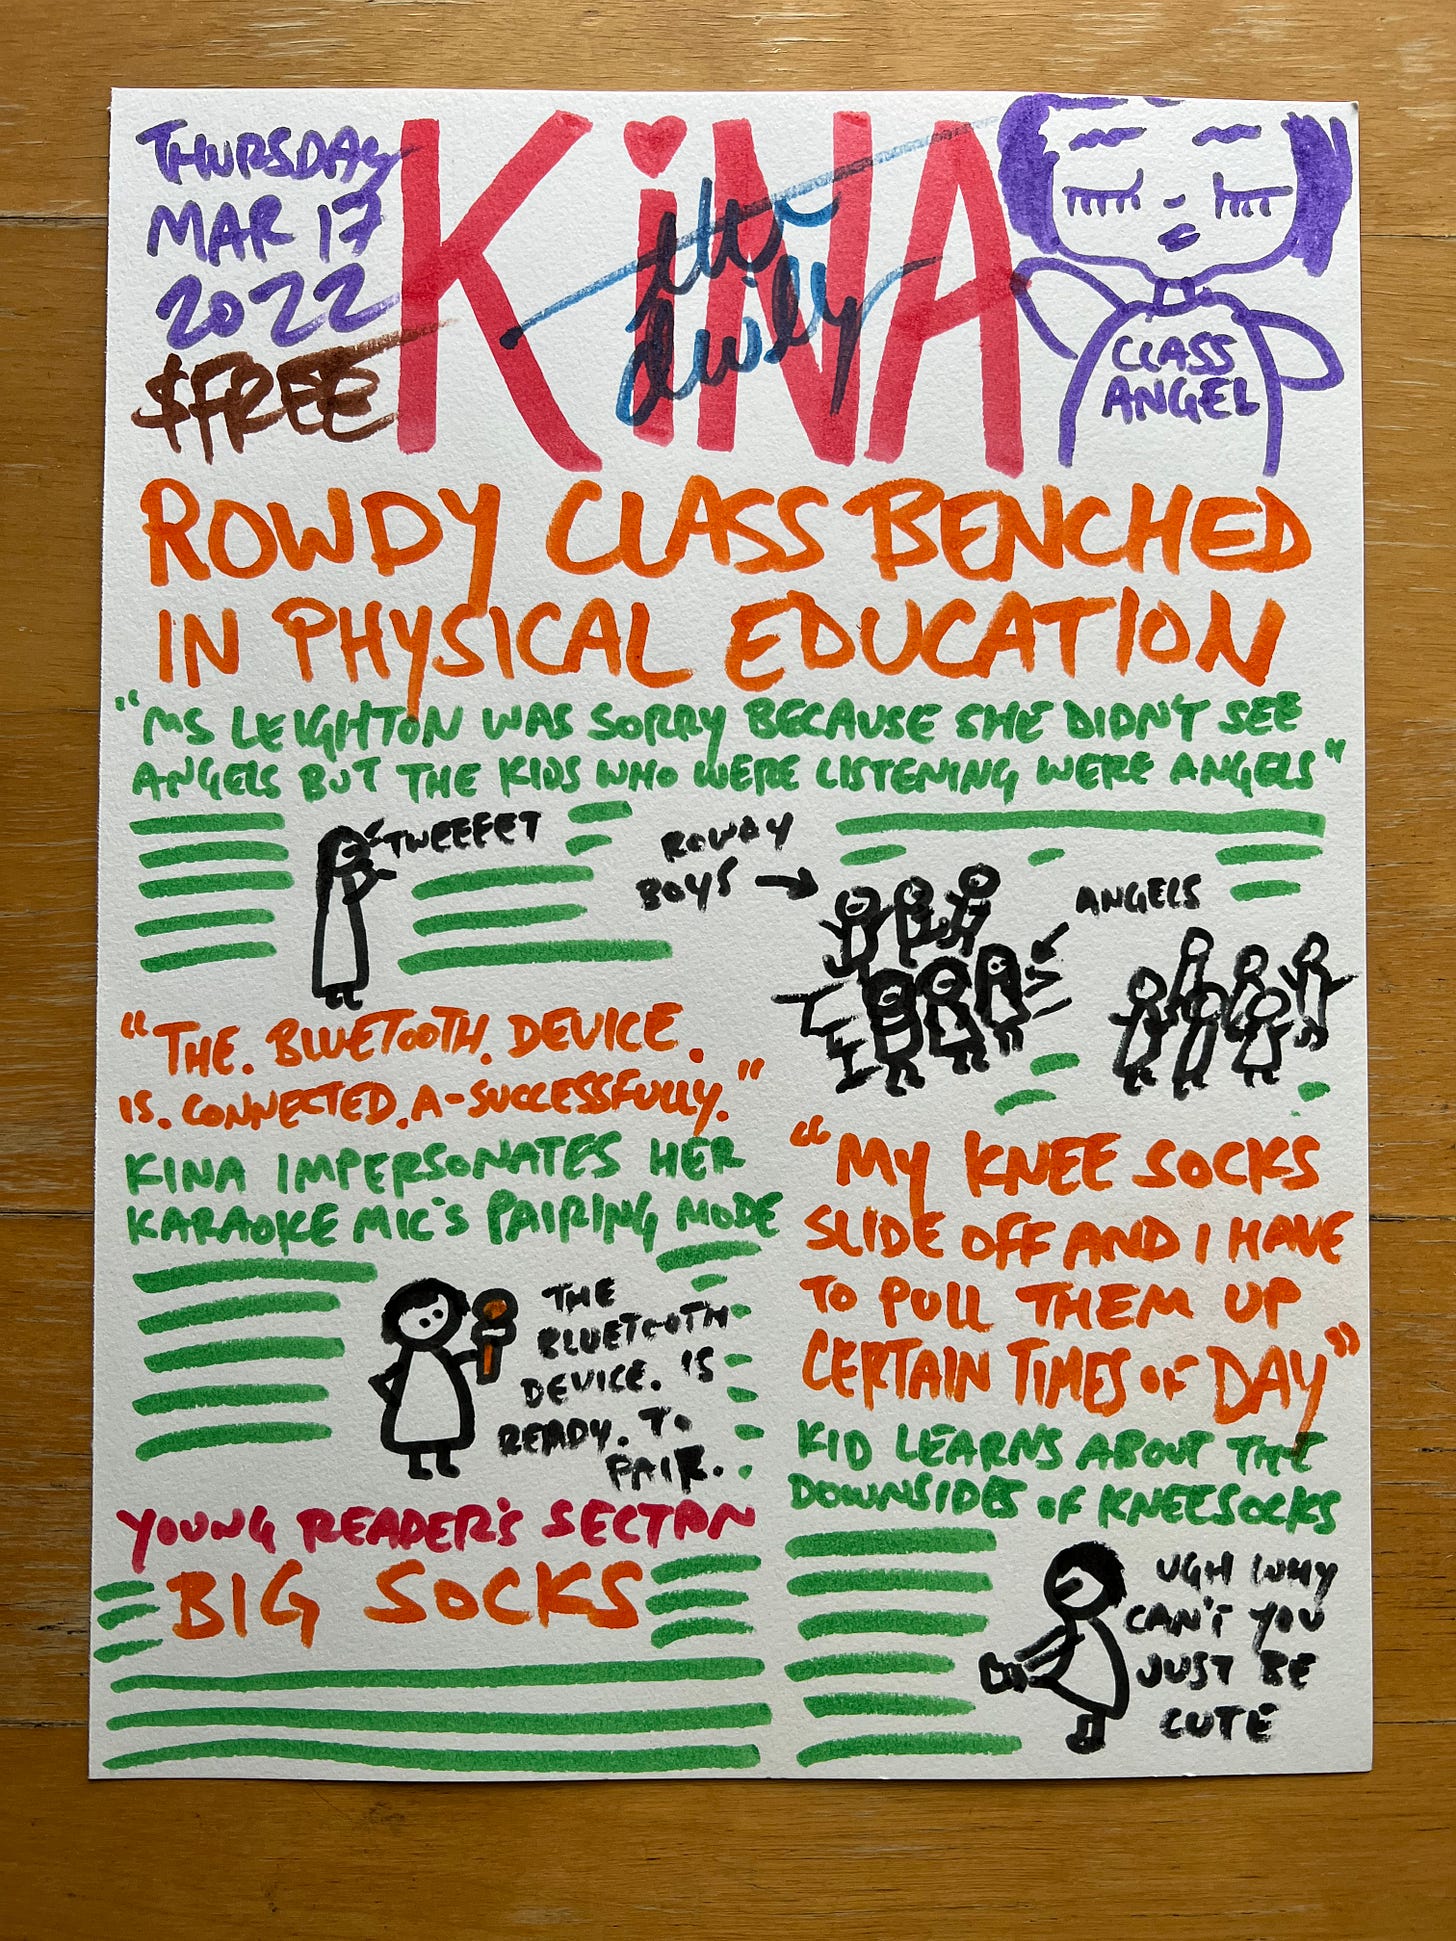 THURSDAY
MAR 17
2022
$FREE
KiNA
the daily
CLASS
ANGEL
ROWDY CLASS BENCHED
IN PHYSICAL EDUCATION
"MS LEIGHTON WAS SORRY BECAUSE SHE DIDN'T SEE
ANGELS BUT THE KIDS WHO WERE LISTENING WERE ANGELS"
TWEEEET
ROWDY
BOYS
ANGELS
"THE. BLUETOOTH. DEVICE.
IS. CONNECTED. A-SUCCESSFULLY."
KINA IMPERSONATES HER
KARAOKE MIC'S PAIRING MODE
THE
BLUETOOTH
DEVICE. IS
READY. TO
PAIR.
"MY KNEE SOCKS
SLIDE OFF AND I HAVE
TO PULL THEM UP
CERTAIN TIMES OF DAY"
KID LEARNS ABOUT THE
DOWNSIDES OF KNEESOCKS
UGH WHY
CAN'T YOU
JUST BE
CUTE
YOUNG READER'S SECTION
BIG SOCKS